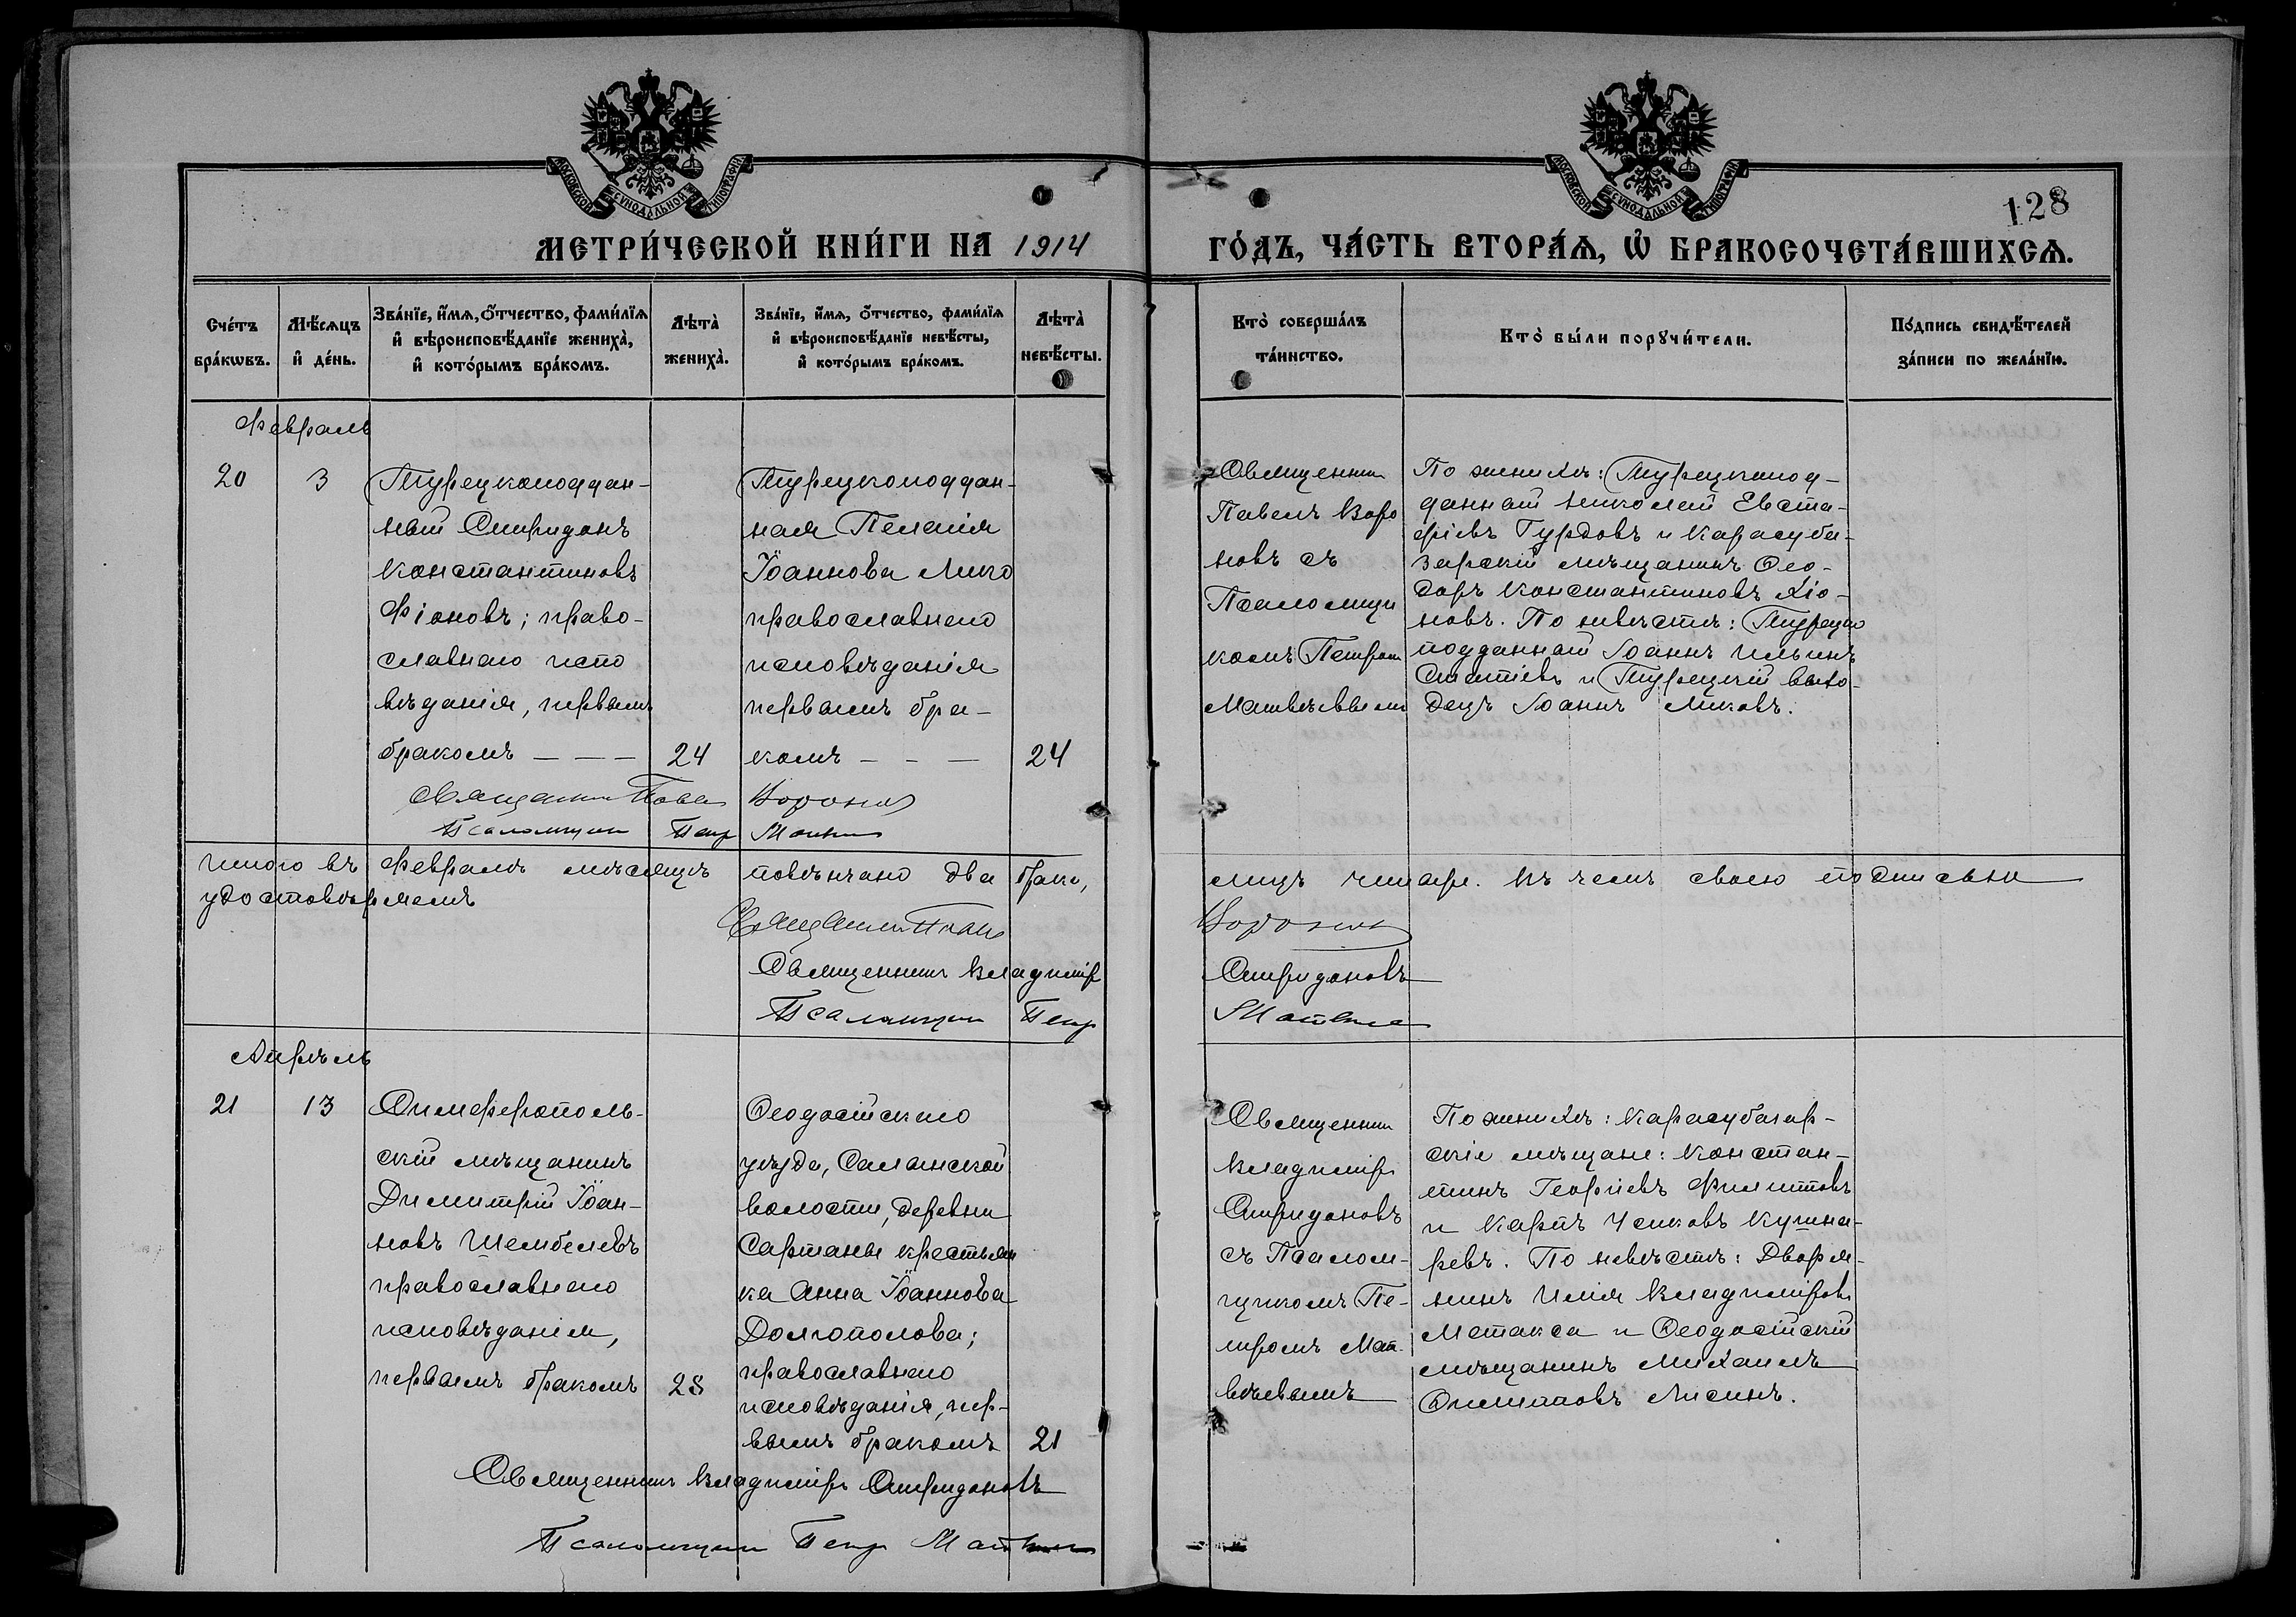 МОСКОВСКОЙ СѴНОДАЛЬНОЙ ТИПОГРАФІИ
МОСКОВСКОЙ СѴНОДАЛЬНОЙ ТИПОГРАФІИ
128
МЕТРИ́ЧЕСКОЙ КНИ́ГИ НА 1914
ГО́ДЪ, ЧА́СТЬ ВТОРА́Ѧ, Ѽ БРАКОСОЧЕТА́ВШИХСѦ.
Сче́тъ
бра́кѡвъ.
Мѣ́сѧцъ
и҆ де́нь.
Зва́нїе, и҆́мѧ, ѻ҆́тчество, фами́лїѧ
и҆ вѣроисповѣ́данїе жениха̀,
и҆ кото́рымъ бра́комъ.
Лѣта̀
жениха̀.
Зва́нїе, и҆́мѧ, ѻ҆́тчество, фами́лїѧ
и҆ вѣроисповѣ́данїе невѣ́сты,
и҆ кото́рымъ бра́комъ.
Лѣта̀
невѣ́сты.
Кто̀ соверша́лъ
та́инство.
Кто̀ бы́ли порꙋчи́тели.
По́дпись свидѣ́телей
за́писи по жела́нїю.
Февраль
20
3
Турецкоподдан-
ный Спиридонъ
Константиновъ
Фіоновъ; право-
славнаго испо
вѣданія, первымъ
бракомъ — — —
24
Турецкоподдан-
ная Пелагія
Іоаннова Лико
православнаго
исповѣданія
первымъ бра-
комъ — — —
24
Священник
Павелъ Воро
новъ съ
Псаломщи
комъ Петром
Матвѣевымъ
По женихѣ: Турецкопод-
данный Николай Евста-
фіевъ Гурдовъ и Карасуба-
зарскій мѣщанинъ Ѳео-
доръ Константиновъ Хіо-
новъ. По невѣстѣ: Турецко
подданный Іоаннъ Ильинъ
и Турецкій выхо-
децъ Іоаннъ Ликовъ.
Священник Павел Воронов
Псаломщик Петр Матвеев
Итого въ Февралѣ мѣсяцѣ повѣнчано два брака,
лицъ четыре. Въ чемъ своею подписью
удостовѣряемъ
Священник Павел Воронов
Священникъ Владиміръ Спиридоновъ
Псаломщик Петр Матвеев
Апрѣль
21
13
Симферополь-
скій мѣщанинъ
Димитрій Іоан-
новъ Шембелевъ
православнаго
исповѣданія,
первымъ бракомъ
28
Ѳеодосійскаго
уѣзда, Салынской
волости, деревни
Сартаны крестьян
ка Анна Іоаннова
Долгополова;
православнаго
исповѣданія, пер-
вымъ бракомъ
21
Священник
Владиміръ
Спиридоновъ
съ Псалом-
щикомъ Пе-
тромъ Мат-
вѣевымъ
По женихѣ: Карасубазар-
скіе мѣщане: Констан-
тинъ Георгіевъ Филиповъ
и Карпъ Кушна-
ревъ. По невѣстѣ: Дворя-
нинъ Илія Владиміровъ
Метакса и Ѳеодосійскій
мѣщанинъ Михаилъ
Лисинъ.
Священникъ Владиміръ Спиридоновъ
Псаломщик Петр Матвеев